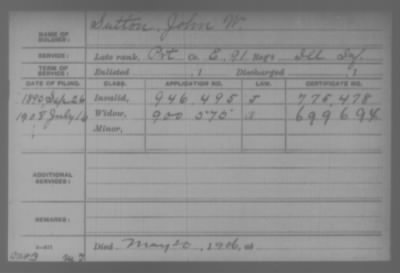 NAME OF SOLDIER: Sutton, John W.
SERVICE: Late rank, Pvt Co. E, 91 Reg't Ill Inf.
TERM OF SERVICE: Enlisted , 1 Discharged , 1
DATE OF FILING. CLASS. APPLICATION NO. LAW. CERTIFICATE NO.
1890, Sep 26 Invalid, 946,495 J 775,478
1908 July 10 Widow, 900 575 699694
Minor,
ADDITIONAL SERVICES:
REMARKS:
Died May 20, 1906, at